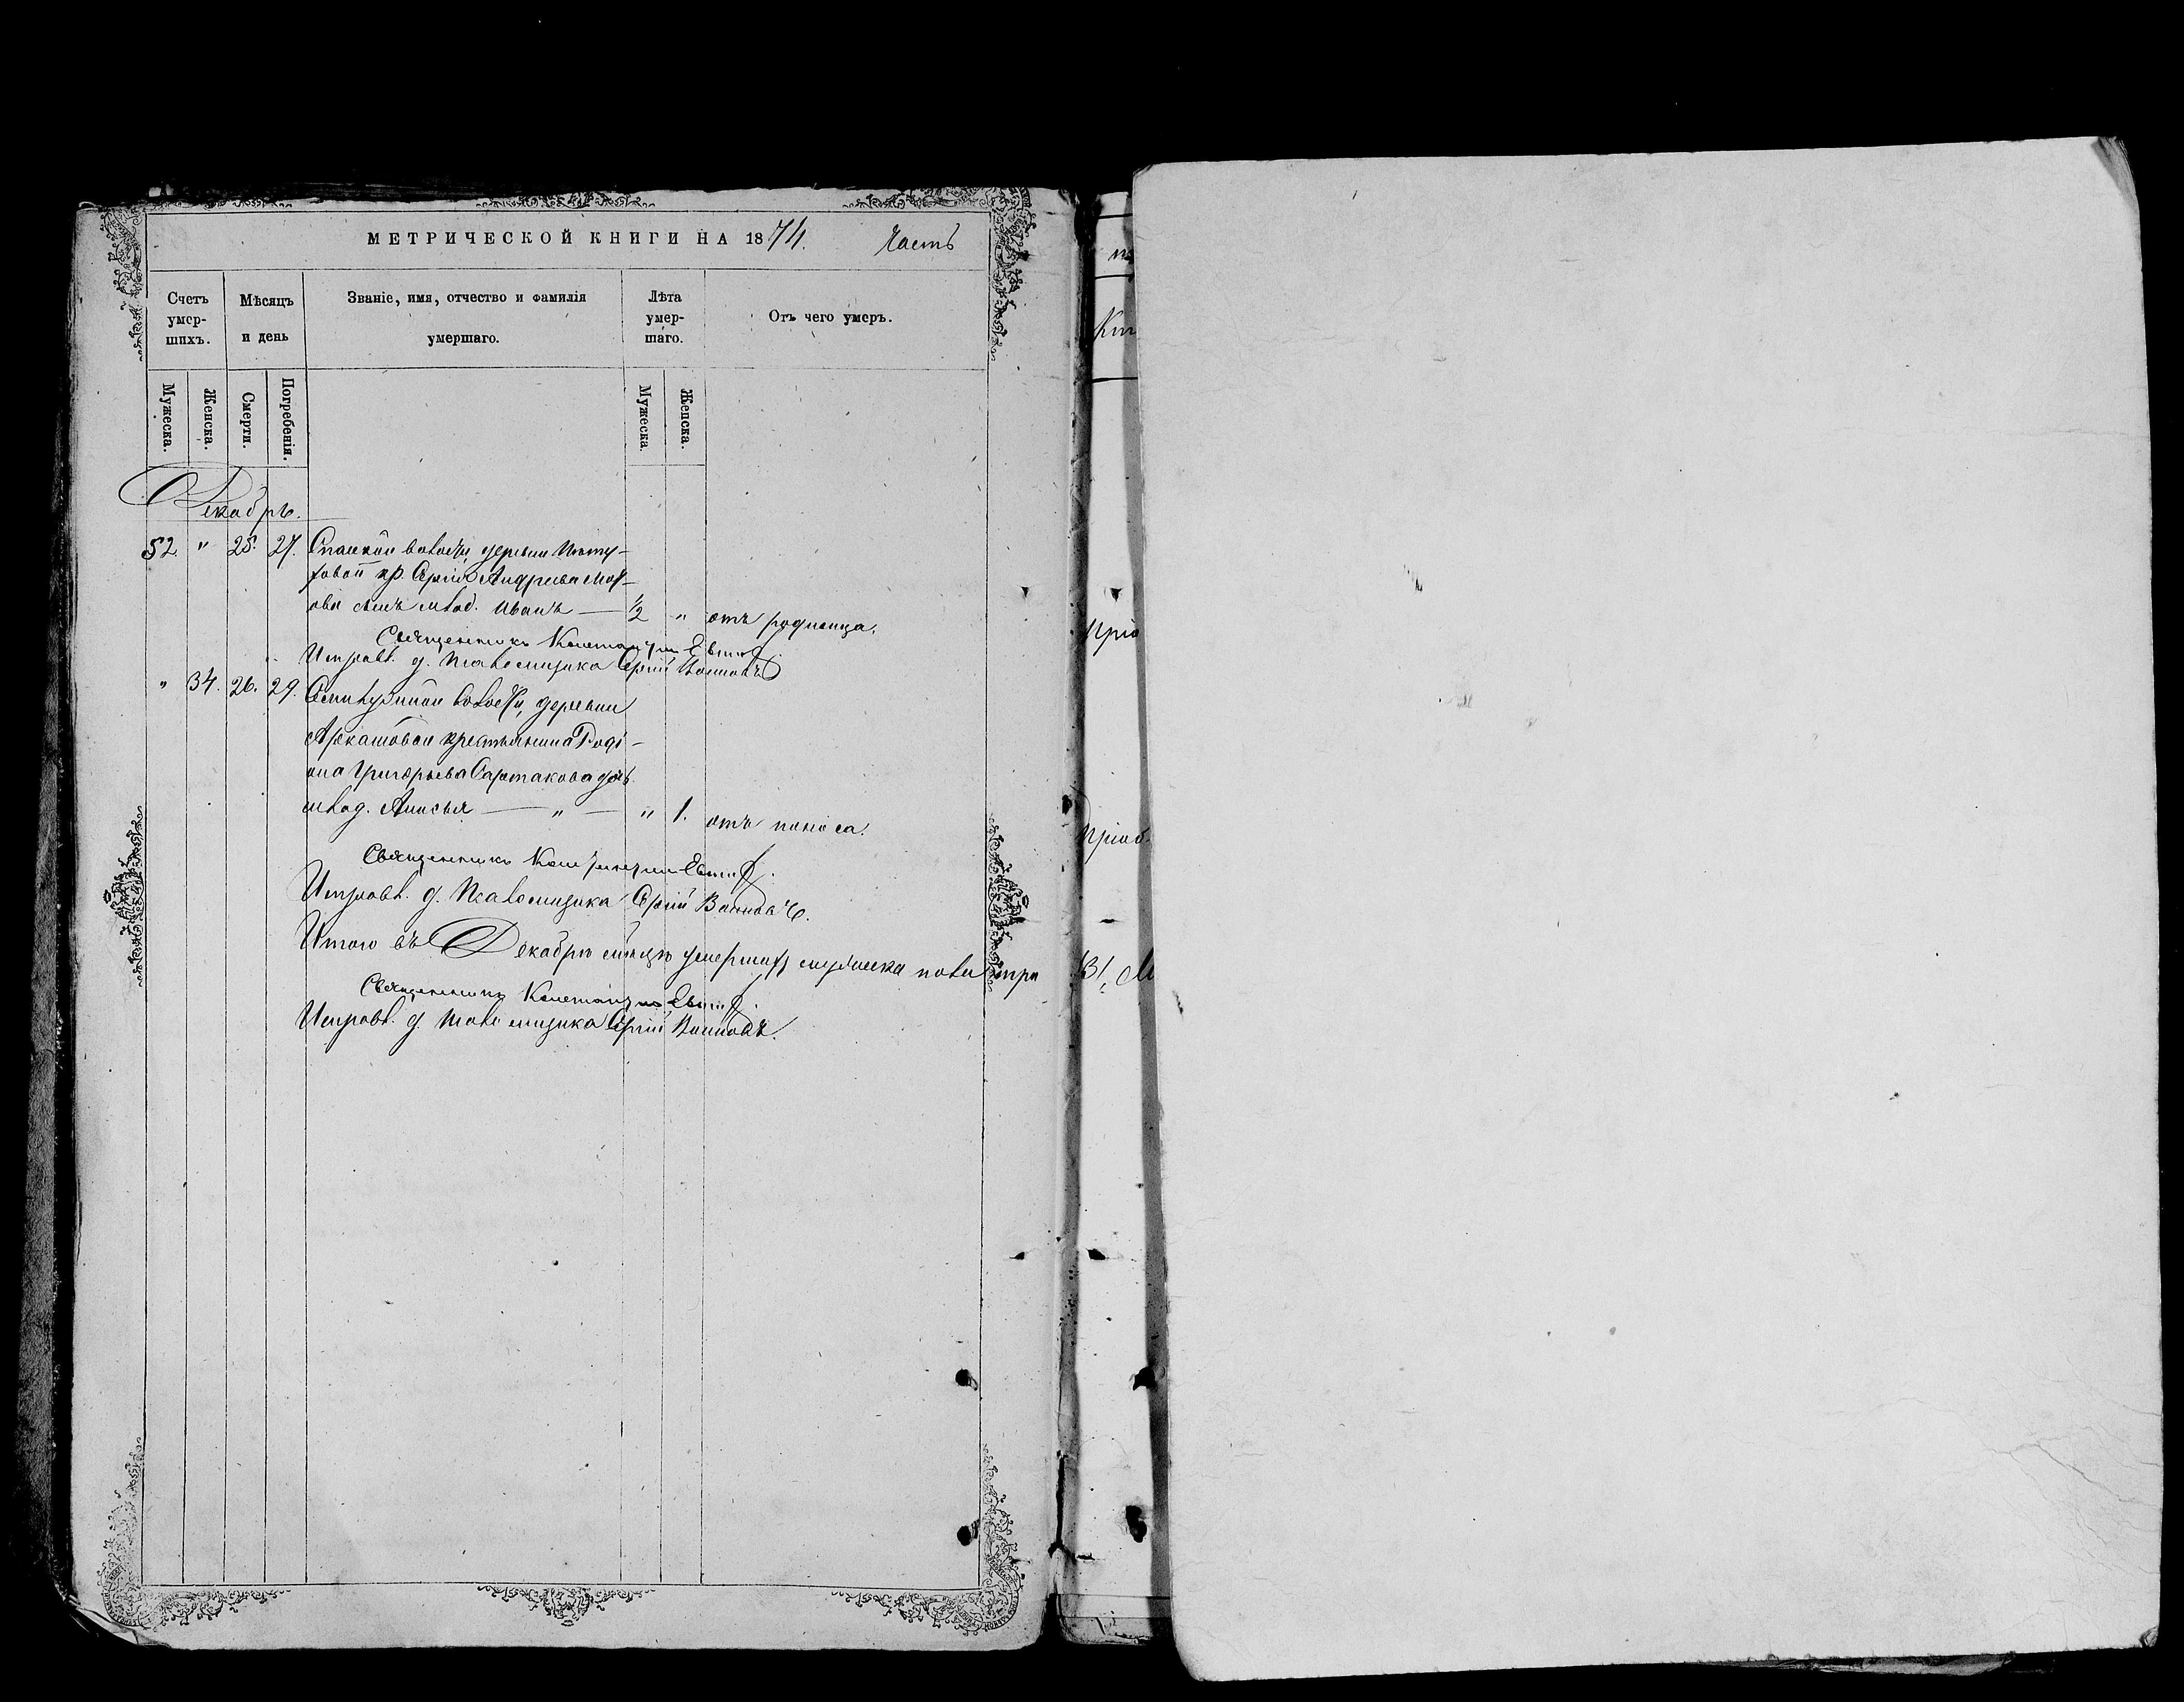 МЕТРИЧЕСКОЙ КНИГИ НА 1874. Часть
Счетъ умер-шихъ.
Мѣсяцъ и день
Званіе, имя, отчество и фамилія умершаго.
Лѣта умер-шаго.
Отъ чего умеръ.
Мужеска.
Женска.
Смерти.
Погребенія.
Мужеска.
Женска.
Декабрь.
52 " 25. 27. Спаской волости, деревни
кр. Сергія Андреева
сынъ млад. Иванъ — 1/2 " отъ родимца.
Священникъ Константинъ
Исправл. д. Псаломщика Сергій
" 34. 26. 29. волости, деревни
крестьянина Роді-
она Григорьева Сартакова дочь
млад. Анисья — " — " 1. отъ поноса.
Священникъ Константинъ
Исправл. д. Псаломщика Сергій
Итого въ Декабрѣ мѣсяцѣ умершихъ мужеска пола три
Священникъ Константинъ
Исправл. д. Псаломщика Сергій